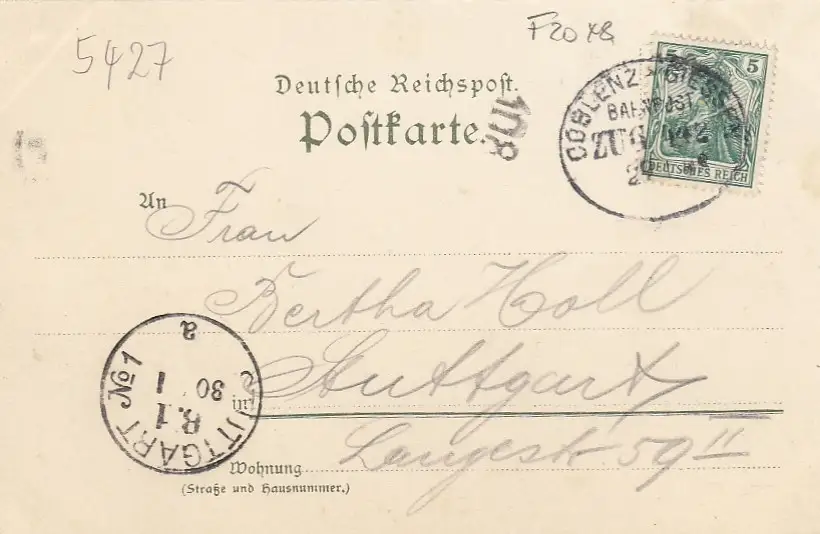 5427
F20 48
Deutsche Reichspost.
Postkarte.
5
COBLENZ - GIESSEN
BAHNPOST
ZUG 142
DEUTSCHES REICH
An Frau
Bertha Holl
in Stuttgart
Wohnung Langestr 59 II
(Straße und Hausnummer.)
STUTTGART No 1
a
30 1
8.1